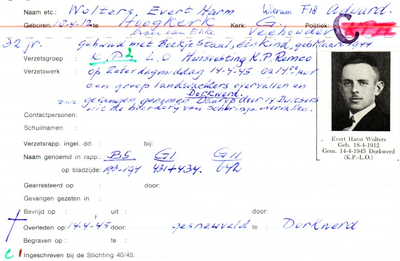 Naam etc.: Wolters, Evert Harm Wierum F18 Aduard.
Geboren: 10.4.12 te Hoogkerk Kerk: G. Politiek:
Veehouder
32 jr. gehuwd met Beekje Staal, een kind, geb. Maart 1944
Verzetsgroep K.P. L.O Huisvesting K.P. Rameo
Verzetswerk op Zaterdagmiddag 14-4-45 om uur
een groep landwachters overvallen en
Dorkwerd.
gevangen genomen. Daarop door 14 Duitsers
uit de boerderij van overvallen.
Contactpersonen:
Schuilnaam :
Verzetsrapp. ingel. dd.: bij:
Naam genoemd in rapp.: BS GI GII
op bladzijde: 193-194 431+434. 642
Gearresteerd op : door:
Gevangen gezeten in :
Bevrijd op : uit : door:
Overleden op : 14-4-45 door: gesneuveld te : Dorkwerd
Begraven op : te :
Ingeschreven bij de Stichting 40/45:
Evert Harm Wolters
Geb. 18-4-1912
Gesn. 14-4-1945 Dorkwerd
(K.P.-L.O.)